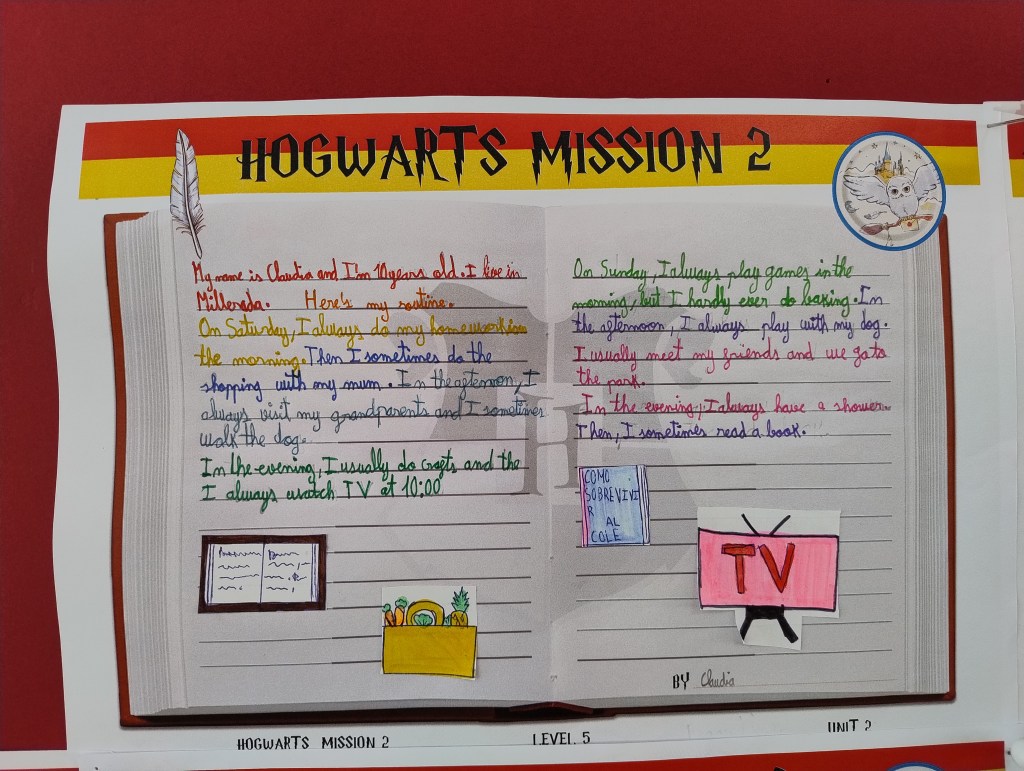 HOGWARTS MISSION 2
My name is Claudia and I'm 10 years old. I live in
Millerada. Here's my routine.
On Saturday, I always do my homework in
the morning. Then I sometimes do the
shopping with my mum. In the afternoon, I
always visit my grandparents and I sometimes
walk the dog.
In the evening, I usually do crafts and the
I always watch TV at 10:00
On Sunday, I always play games in the
morning, but I hardly ever do baking. In
the afternoon, I always play with my dog.
I usually meet my friends and we go to
the park.
In the evening, I always have a shower.
Then, I sometimes read a book.
COMO
SOBREVIVI
R
AL
COLE
TV
BY Claudia
HOGWARTS MISSION 2
LEVEL 5
UNIT 2